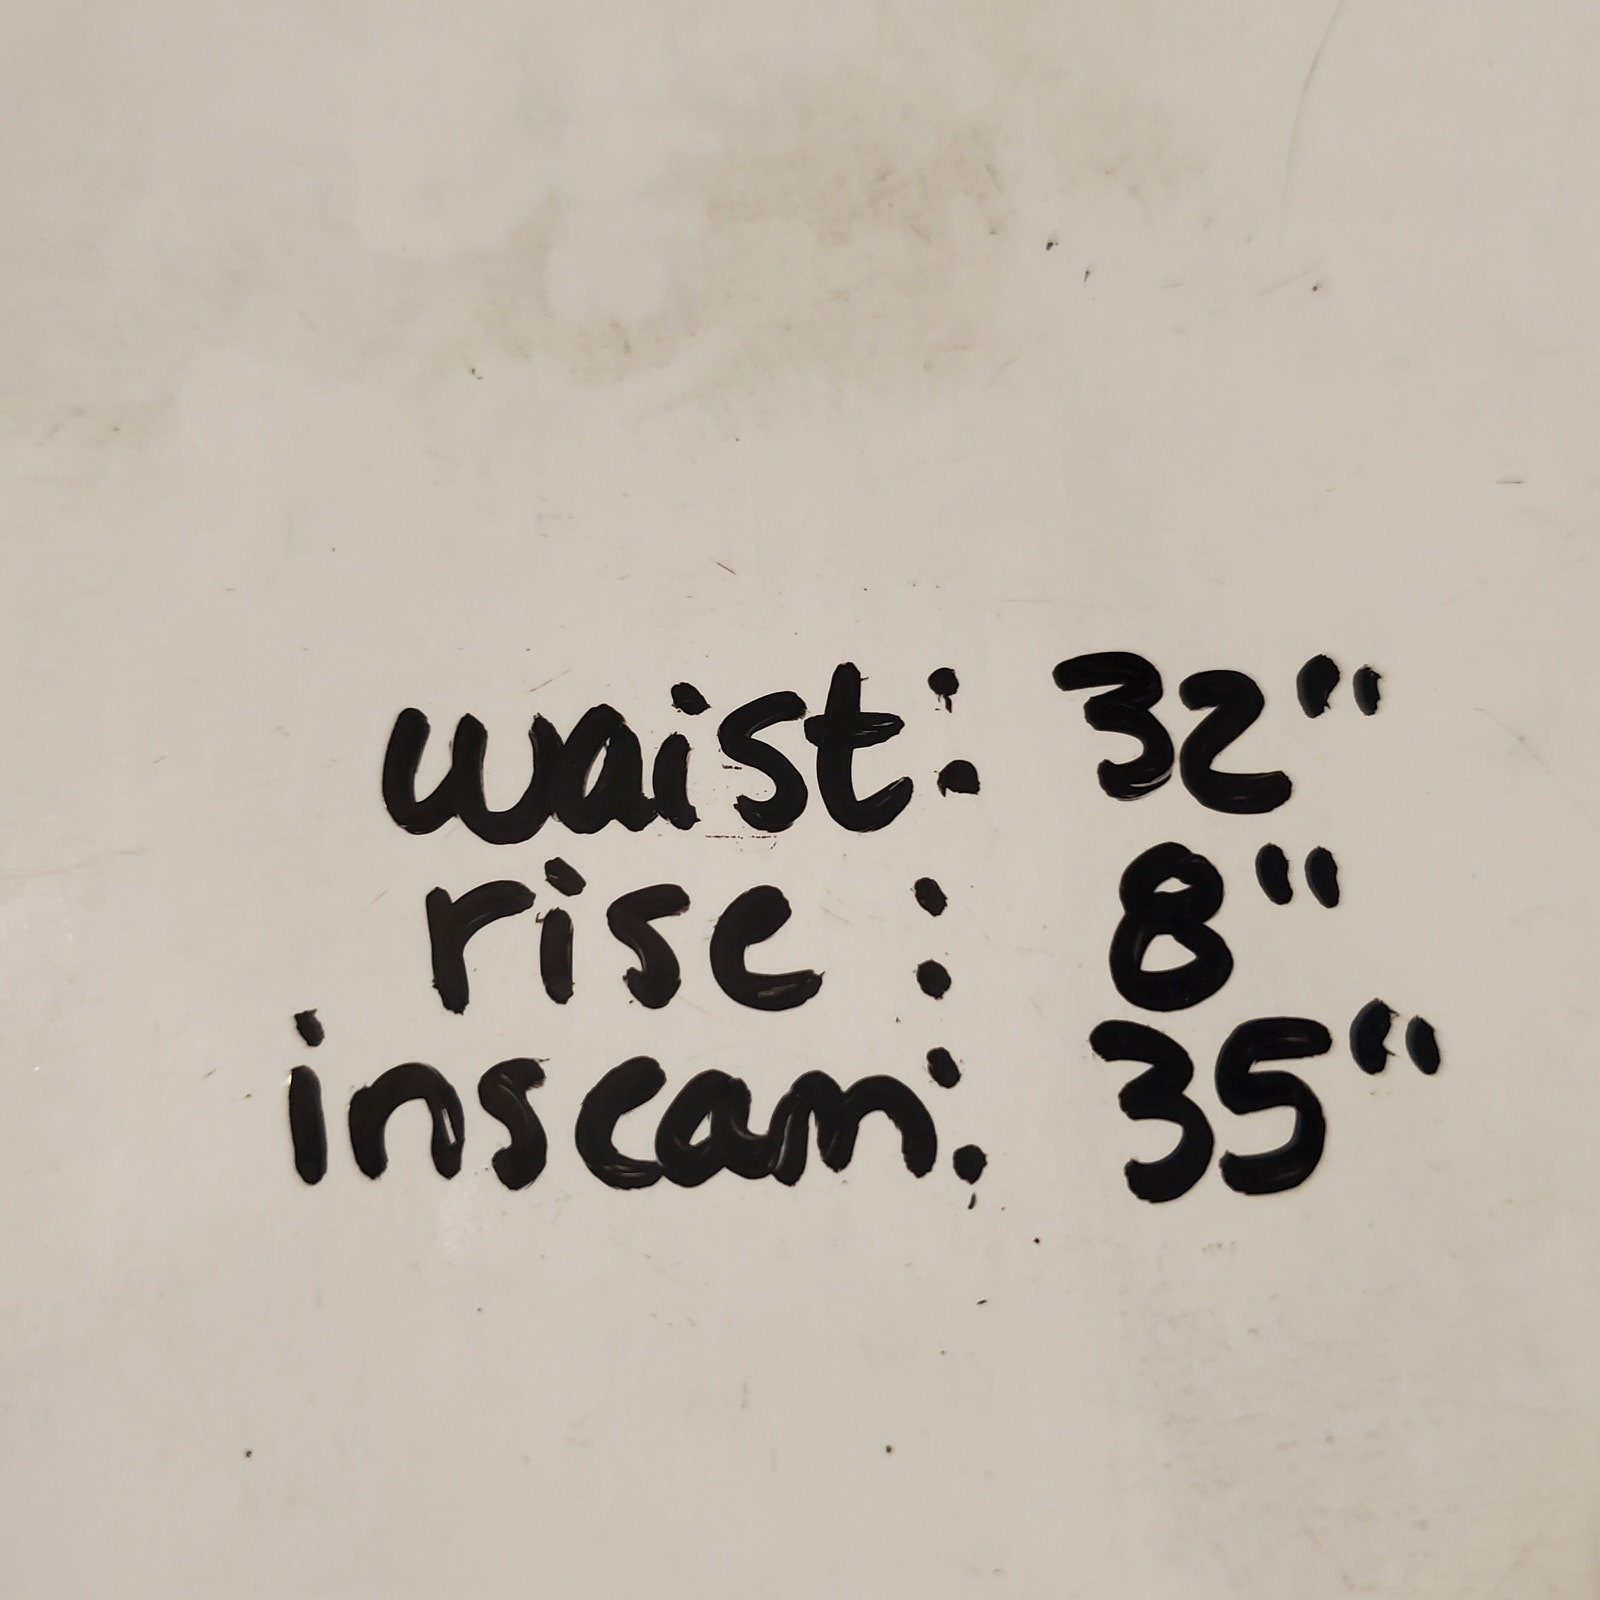 waist: 32"
rise : 8"
inseam: 35"